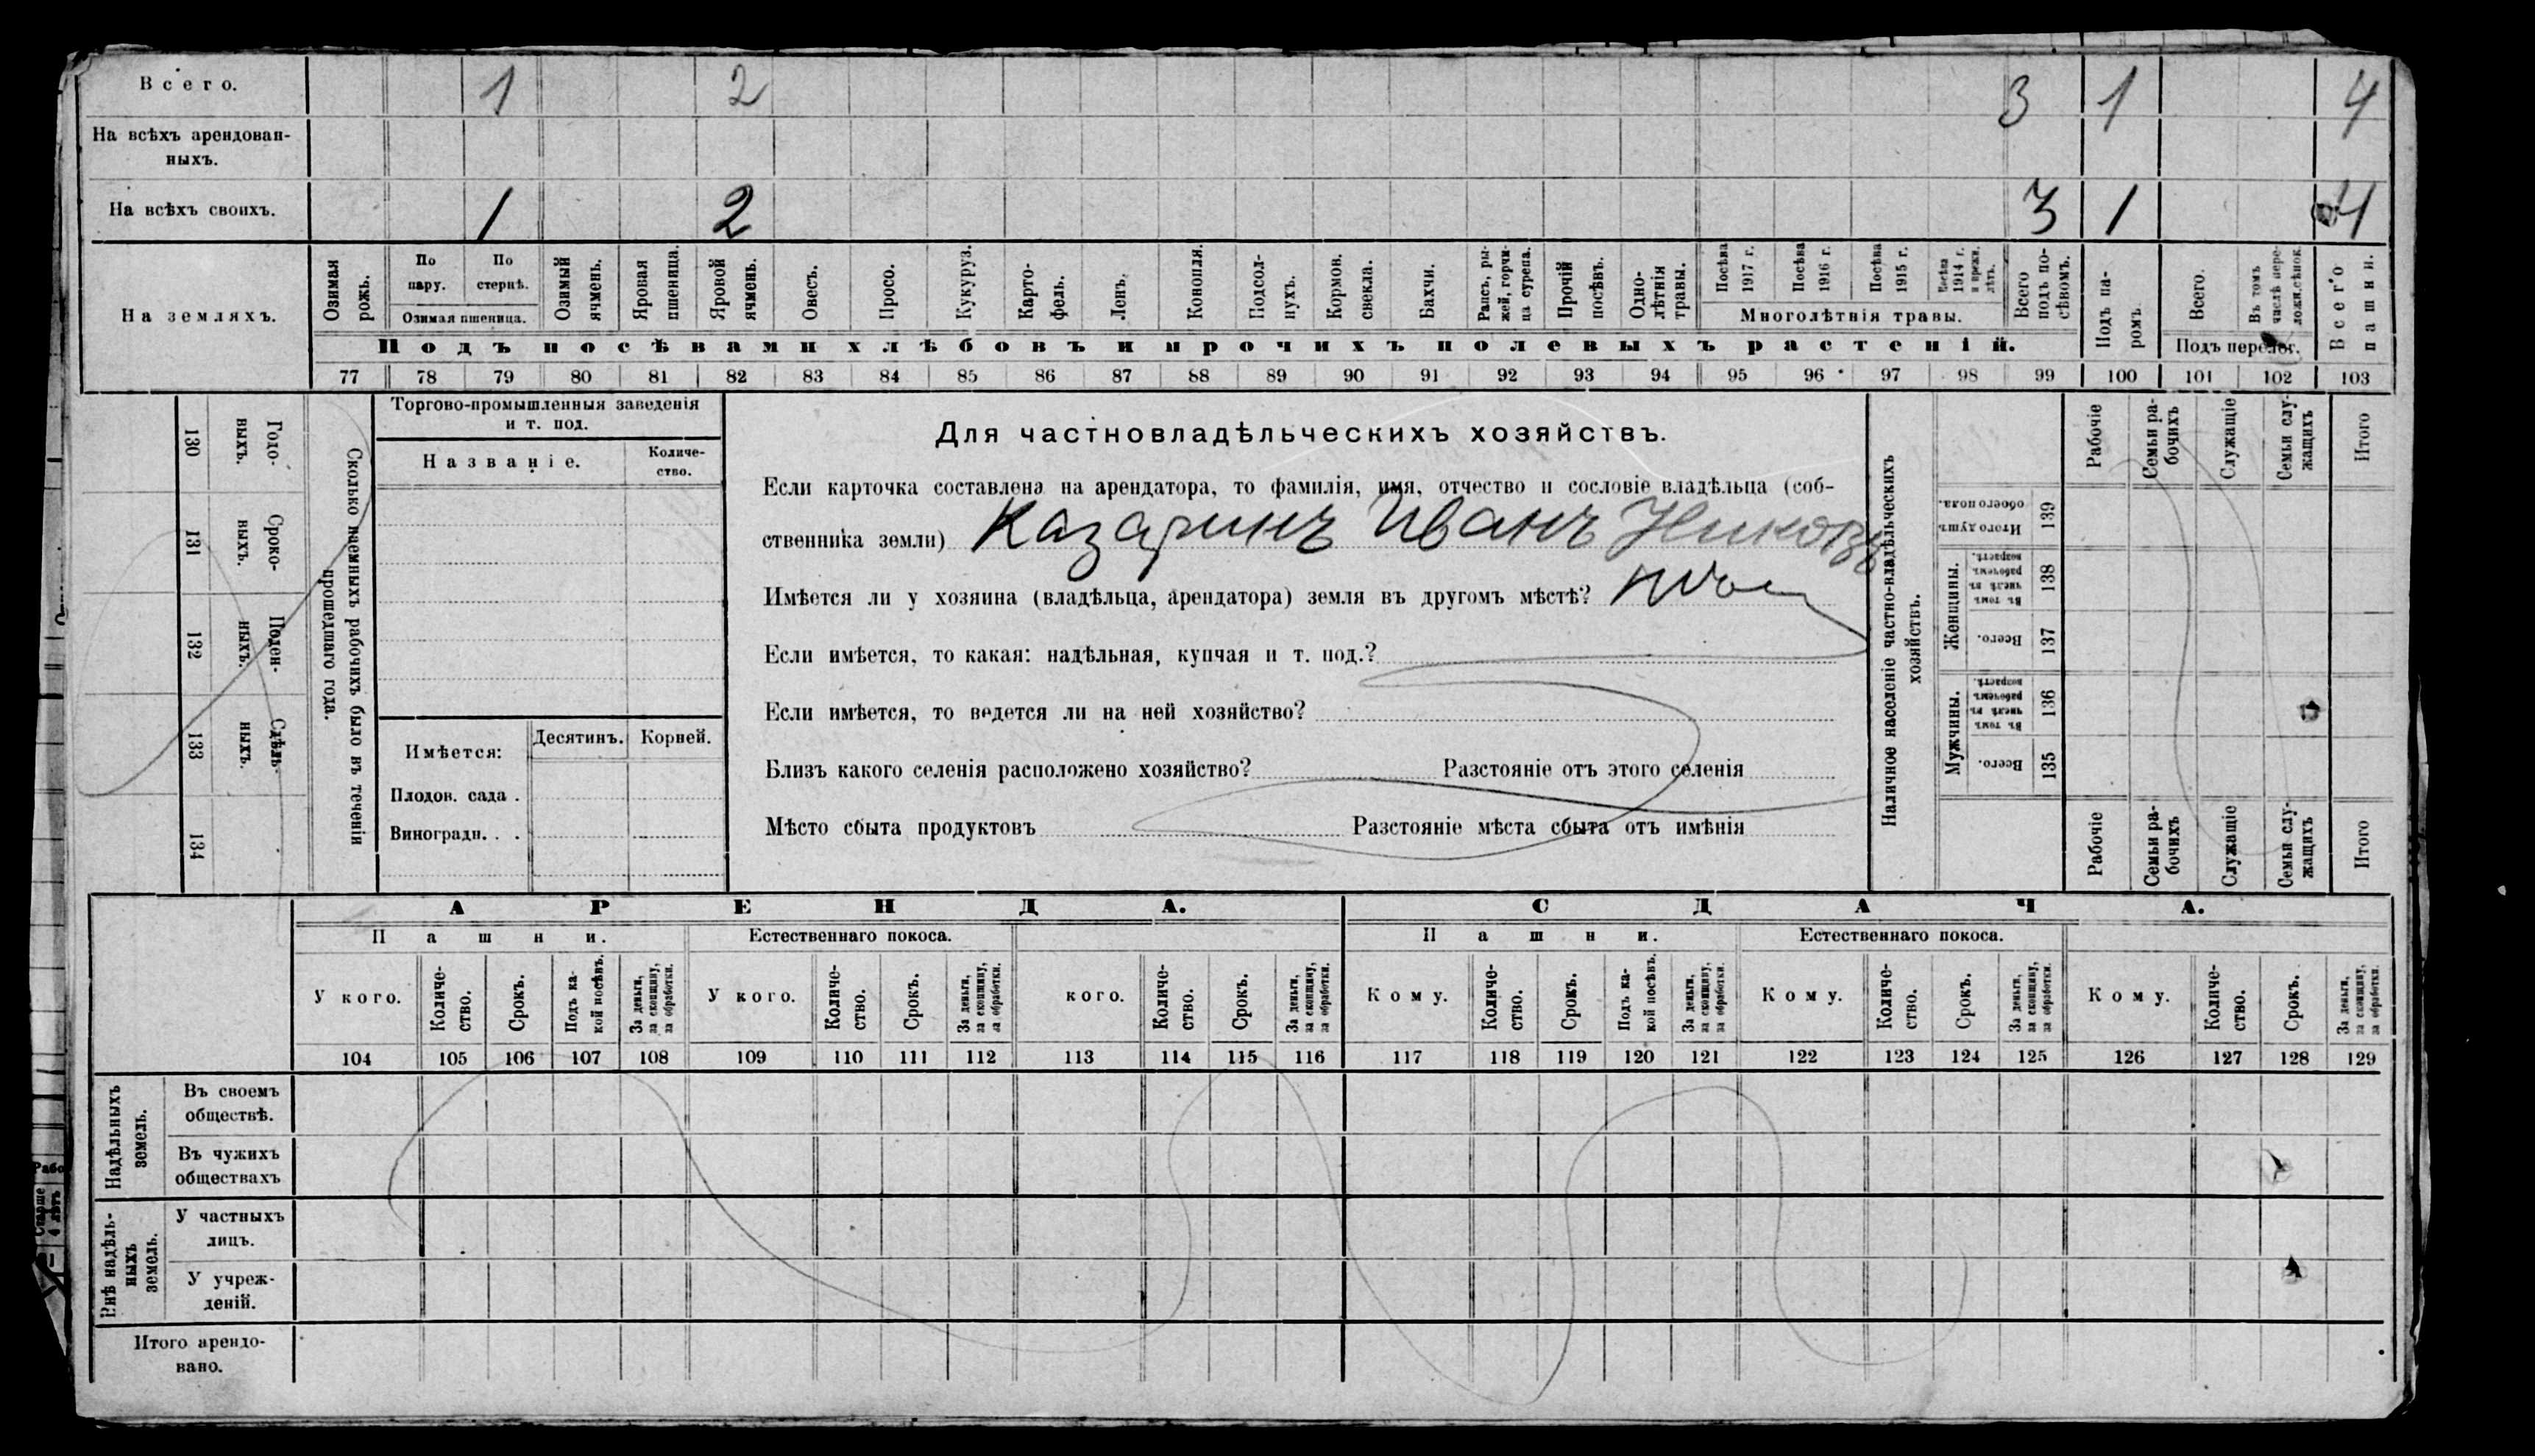 Всего. 1 2 3 1 4
На всѣхъ арендован-
ныхъ.
На всѣхъ своихъ. 1 2 3 1 4
На земляхъ.
Озимая рожь.
По пару.
По стернѣ.
Озимая пшеница.
Озимый ячмень.
Яровая пшеница.
Яровой ячмень.
Овесъ.
Просо.
Кукуруз.
Карто-
фель.
Ленъ.
Конопля.
Подсол-
нухъ.
Кормов. свекла.
Бахчи.
Рапсъ, ры-
жей, горчи-
ца сурепа.
Прочій посѣвъ.
Одно-
лѣтнія травы.
Посѣва 1917 г.
Посѣва 1916 г.
Посѣва 1915 г.
Посѣва 1914 г. и прежн. лѣтъ.
Многолѣтнія травы.
Всего подъ по-
сѣвомъ.
Подъ па-
ромъ.
Всего.
Въ томъ числѣ пере-
Подъ перелог.
Всего пашни.
Подъ посѣвами хлѣбовъ и прочихъ полевыхъ растеній.
77 78 79 80 81 82 83 84 85 86 87 88 89 90 91 92 93 94 95 96 97 98 99 100 101 102 103
130 131 132 133 134
Годо-
выхъ.
Сроко-
выхъ.
Поден-
ныхъ.
Сдѣль-
ныхъ.
Сколько наемныхъ рабочихъ было въ теченіи
прошедшаго года.
Торгово-промышленныя заведенія
и т. под.
Названіе.
Количе-
ство.
Имѣется:
Десятинъ.
Корней.
Плодов. сада .
Виноградн. . .
Для частновладѣльческихъ хозяйствъ.
Если карточка составлена на арендатора, то фамилія, имя, отчество и сословіе владѣльца (соб-
ственника земли) Казаринъ Иванъ
Имѣется ли у хозяина (владѣльца, арендатора) земля въ другомъ мѣстѣ?
Если имѣется, то какая: надѣльная, купчая и т. под.?
Если имѣется, то ведется ли на ней хозяйство?
Близъ какого селенія расположено хозяйство? Разстояніе отъ этого селенія
Мѣсто сбыта продуктовъ Разстояніе мѣста сбыта отъ имѣнія
Наличное населеніе частно-владѣльческихъ
хозяйствъ.
Рабочіе
Семьи ра-
бочихъ
Служащіе
Семьи слу-
жащихъ
Итого
Итого душъ обоего пола. 139
Женщины.
Въ томъ числѣ въ рабочемъ возрастѣ. 138
Всего. 137
Мужчины.
Въ томъ числѣ въ рабочемъ возрастѣ. 136
Всего. 135
Рабочіе
Семьи ра-
бочихъ
Служащіе
Семьи слу-
жащихъ
Итого
АРЕНДА. СДАЧА.
Пашни. Естественнаго покоса. Пашни. Естественнаго покоса.
У кого.
Количе-
ство.
Срокъ.
Подъ ка-
кой посѣвъ.
За деньги, за скопщину, за обработки.
У кого.
Количе-
ство.
Срокъ.
За деньги, за скопщину, за обработки.
кого.
Количе-
ство.
Срокъ.
За деньги, за скопщину, за обработки.
Кому.
Количе-
ство.
Срокъ.
Подъ ка-
кой посѣвъ.
За деньги, за скопщину, за обработки.
Кому.
Количе-
ство.
Срокъ.
За деньги, за скопщину, за обработки.
Кому.
Количе-
ство.
Срокъ.
За деньги, за скопщину, за обработки.
104 105 106 107 108 109 110 111 112 113 114 115 116 117 118 119 120 121 122 123 124 125 126 127 128 129
Надѣльныхъ
земель.
Въ своемъ
обществѣ.
Въ чужихъ
обществахъ
Внѣ надѣль-
ныхъ
земель.
У частныхъ
лицъ.
У учреж-
деній.
Итого арендо-
вано.